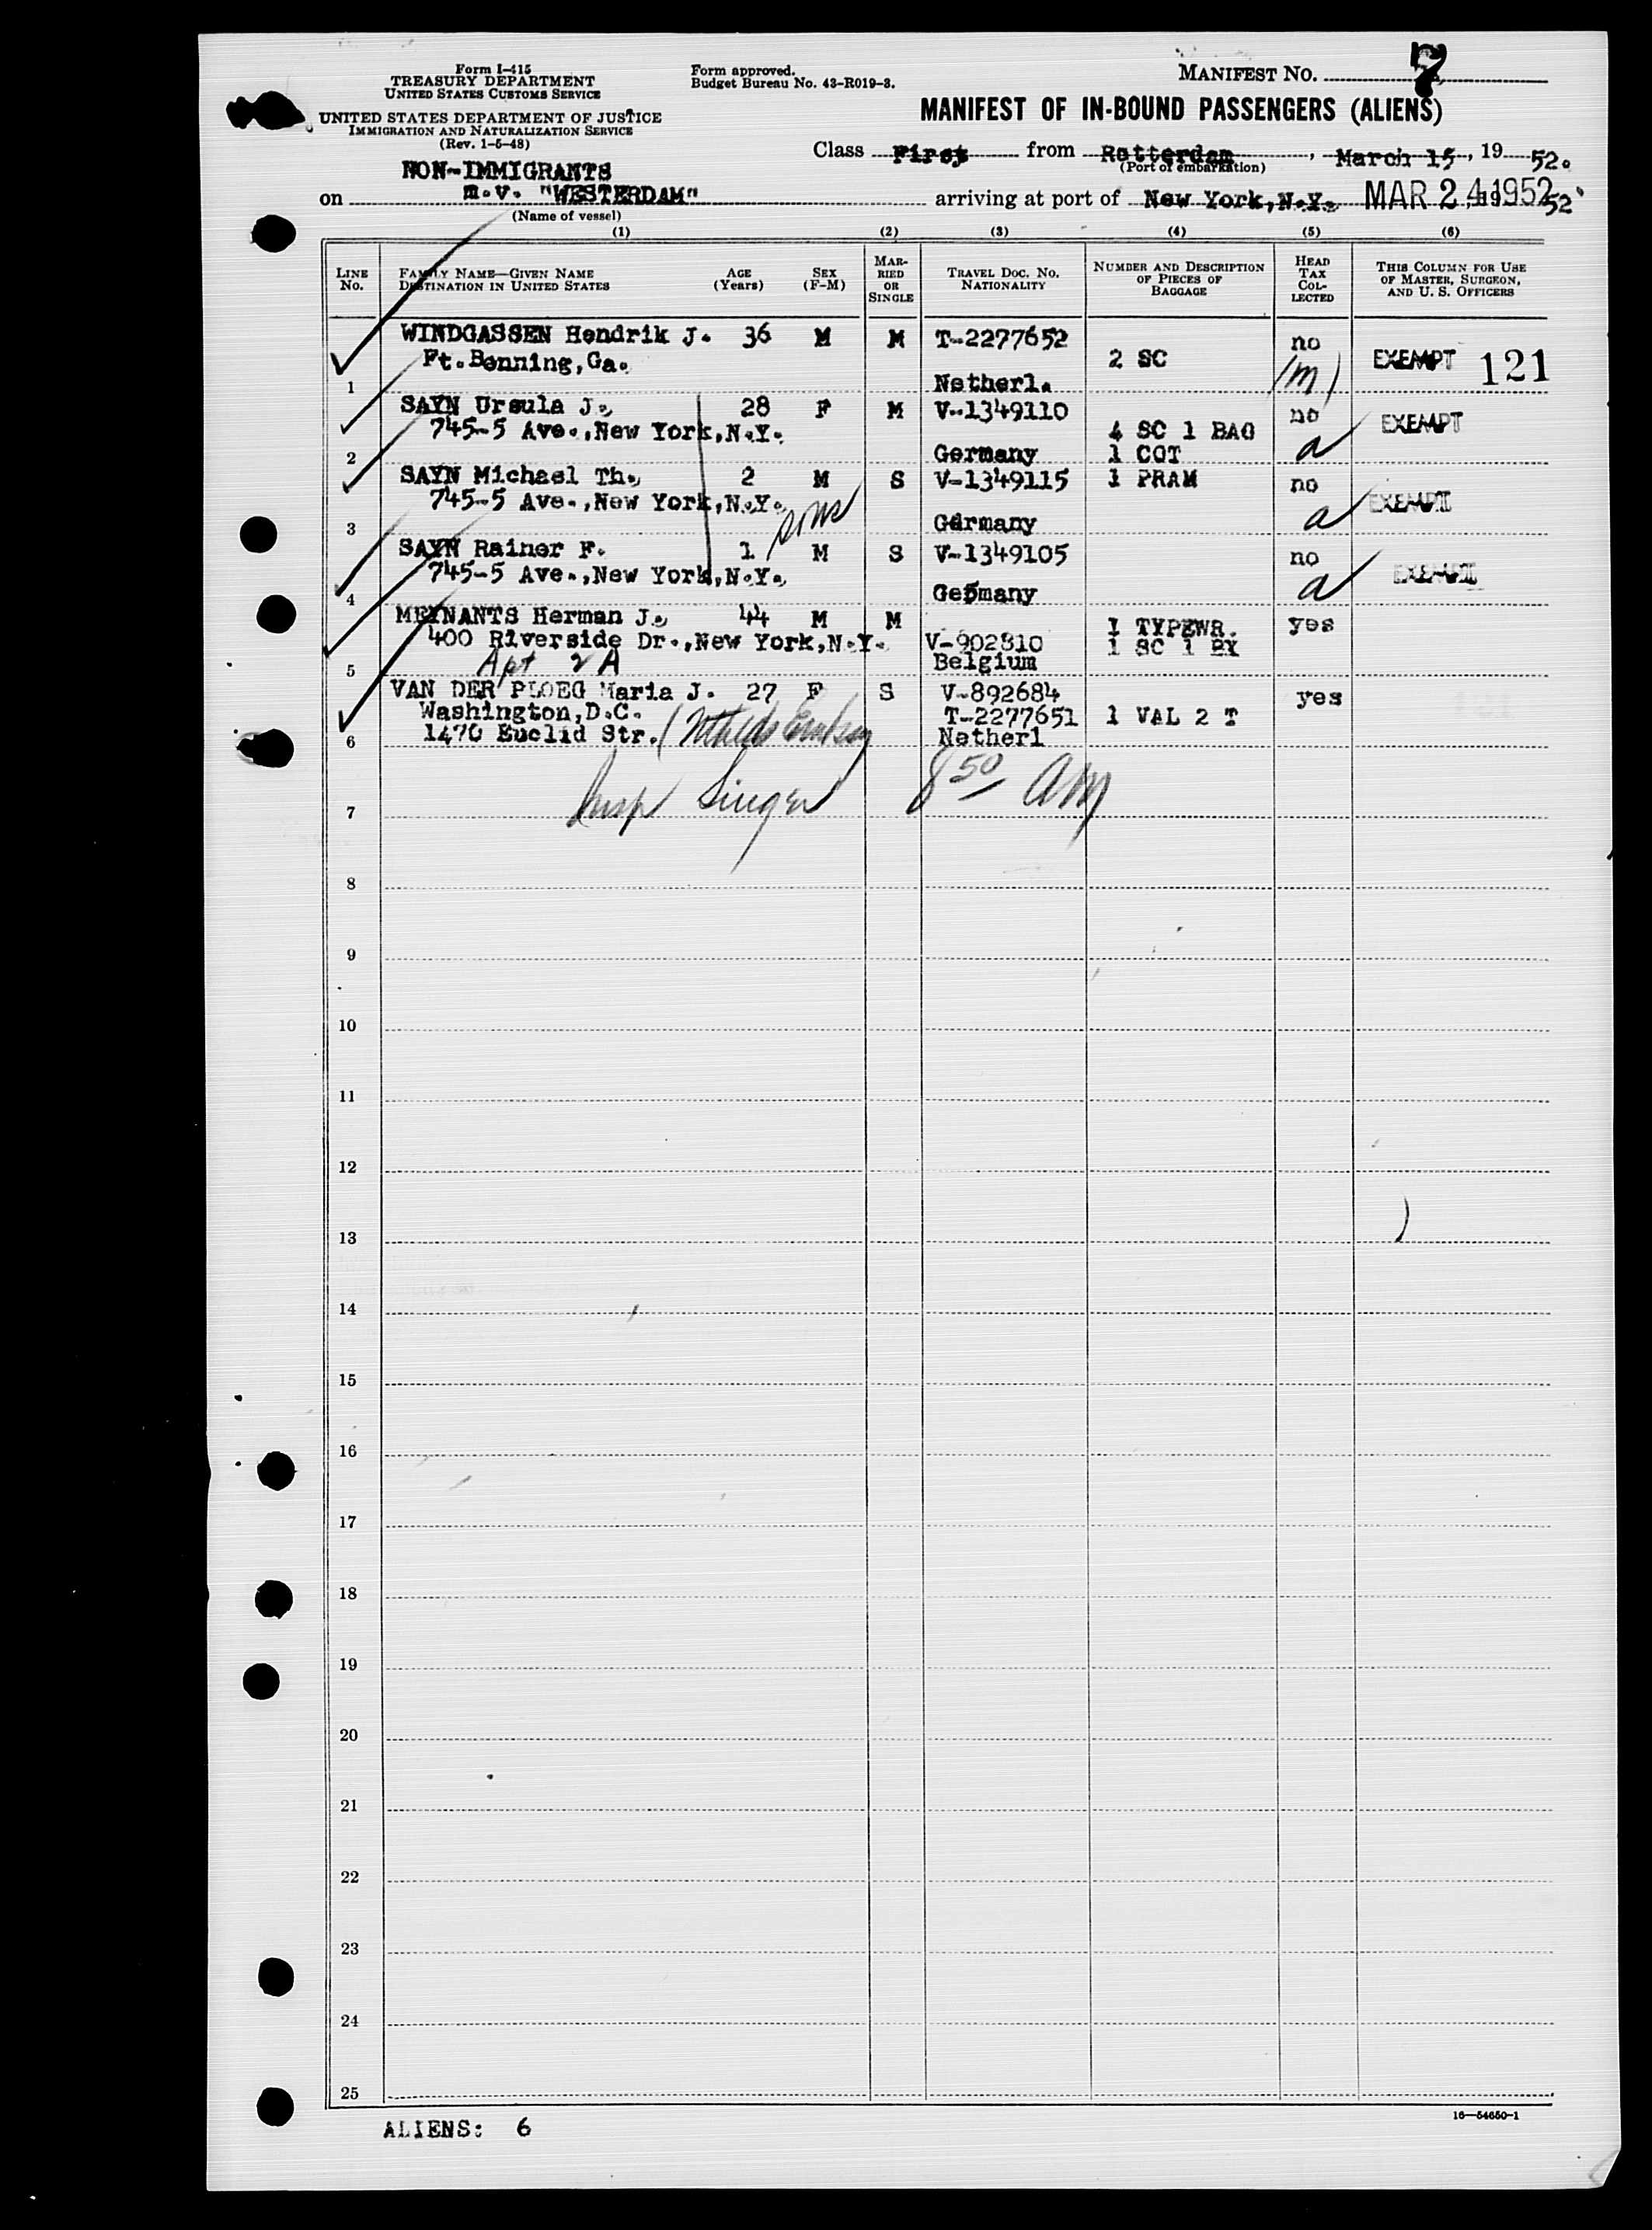 Form I-415
TREASURY DEPARTMENT
UNITED STATES CUSTOMS SERVICE
UNITED STATES DEPARTMENT OF JUSTICE
IMMIGRATION AND NATURALIZATION SERVICE
(Rev. 1-5-48)
Form approved.
Budget Bureau No. 43-R019-3.
MANIFEST NO. 7
MANIFEST OF IN-BOUND PASSENGERS (ALIENS)
Class First from Rotterdam, March 15, 19 52.
(Port of embarkation)
NON-IMMIGRANTS
on m.v. "WESTERDAM" arriving at port of New York, N.Y. MAR 24 1952 52
(Name of vessel)
(1) (2) (3) (4) (5) (6)
LINE No. FAMILY NAME—GIVEN NAME DESTINATION IN UNITED STATES AGE (Years) SEX (F-M) MARRIED OR SINGLE TRAVEL DOC. NO. NATIONALITY NUMBER AND DESCRIPTION OF PIECES OF BAGGAGE HEAD TAX COLLECTED THIS COLUMN FOR USE OF MASTER, SURGEON, AND U. S. OFFICERS
WINDGASSEN Hendrik J. 36 M M T-2277652 no
Ft.Benning,Ga. 2 SC EXEMPT 121
1 Netherl. (m)
SAYN Ursula J. 28 F M V-1349110 no EXEMPT
745-5 Ave.,New York,N.Y. 4 SC 1 BAG
2 Germany 1 COT a
SAYN Michael Th. 2 M S V-1349115 1 PRAM no
745-5 Ave.,New York,N.Y. sons EXEMPT
3 Germany a
SAYN Rainer F. 1 M S V-1349105 no
745-5 Ave.,New York,N.Y. EXEMPT
4 Germany a
MEYNANTS Herman J. 44 M M 1 TYPEWR. yes
400 Riverside Dr.,New York,N.Y. V-902810 1 SC 1 BX
5 Apt 2A Belgium
VAN DER PLOEG Maria J. 27 F S V-892684 yes
Washington,D.C. T-2277651 1 VAL 2 T
6 1470 Euclid Str. Embassy Netherl
7 Insp Singer 8 50 AM
8
9
10
11
12
13
14
15
16
17
18
19
20
21
22
23
24
25
ALIENS: 6
16—54650-1